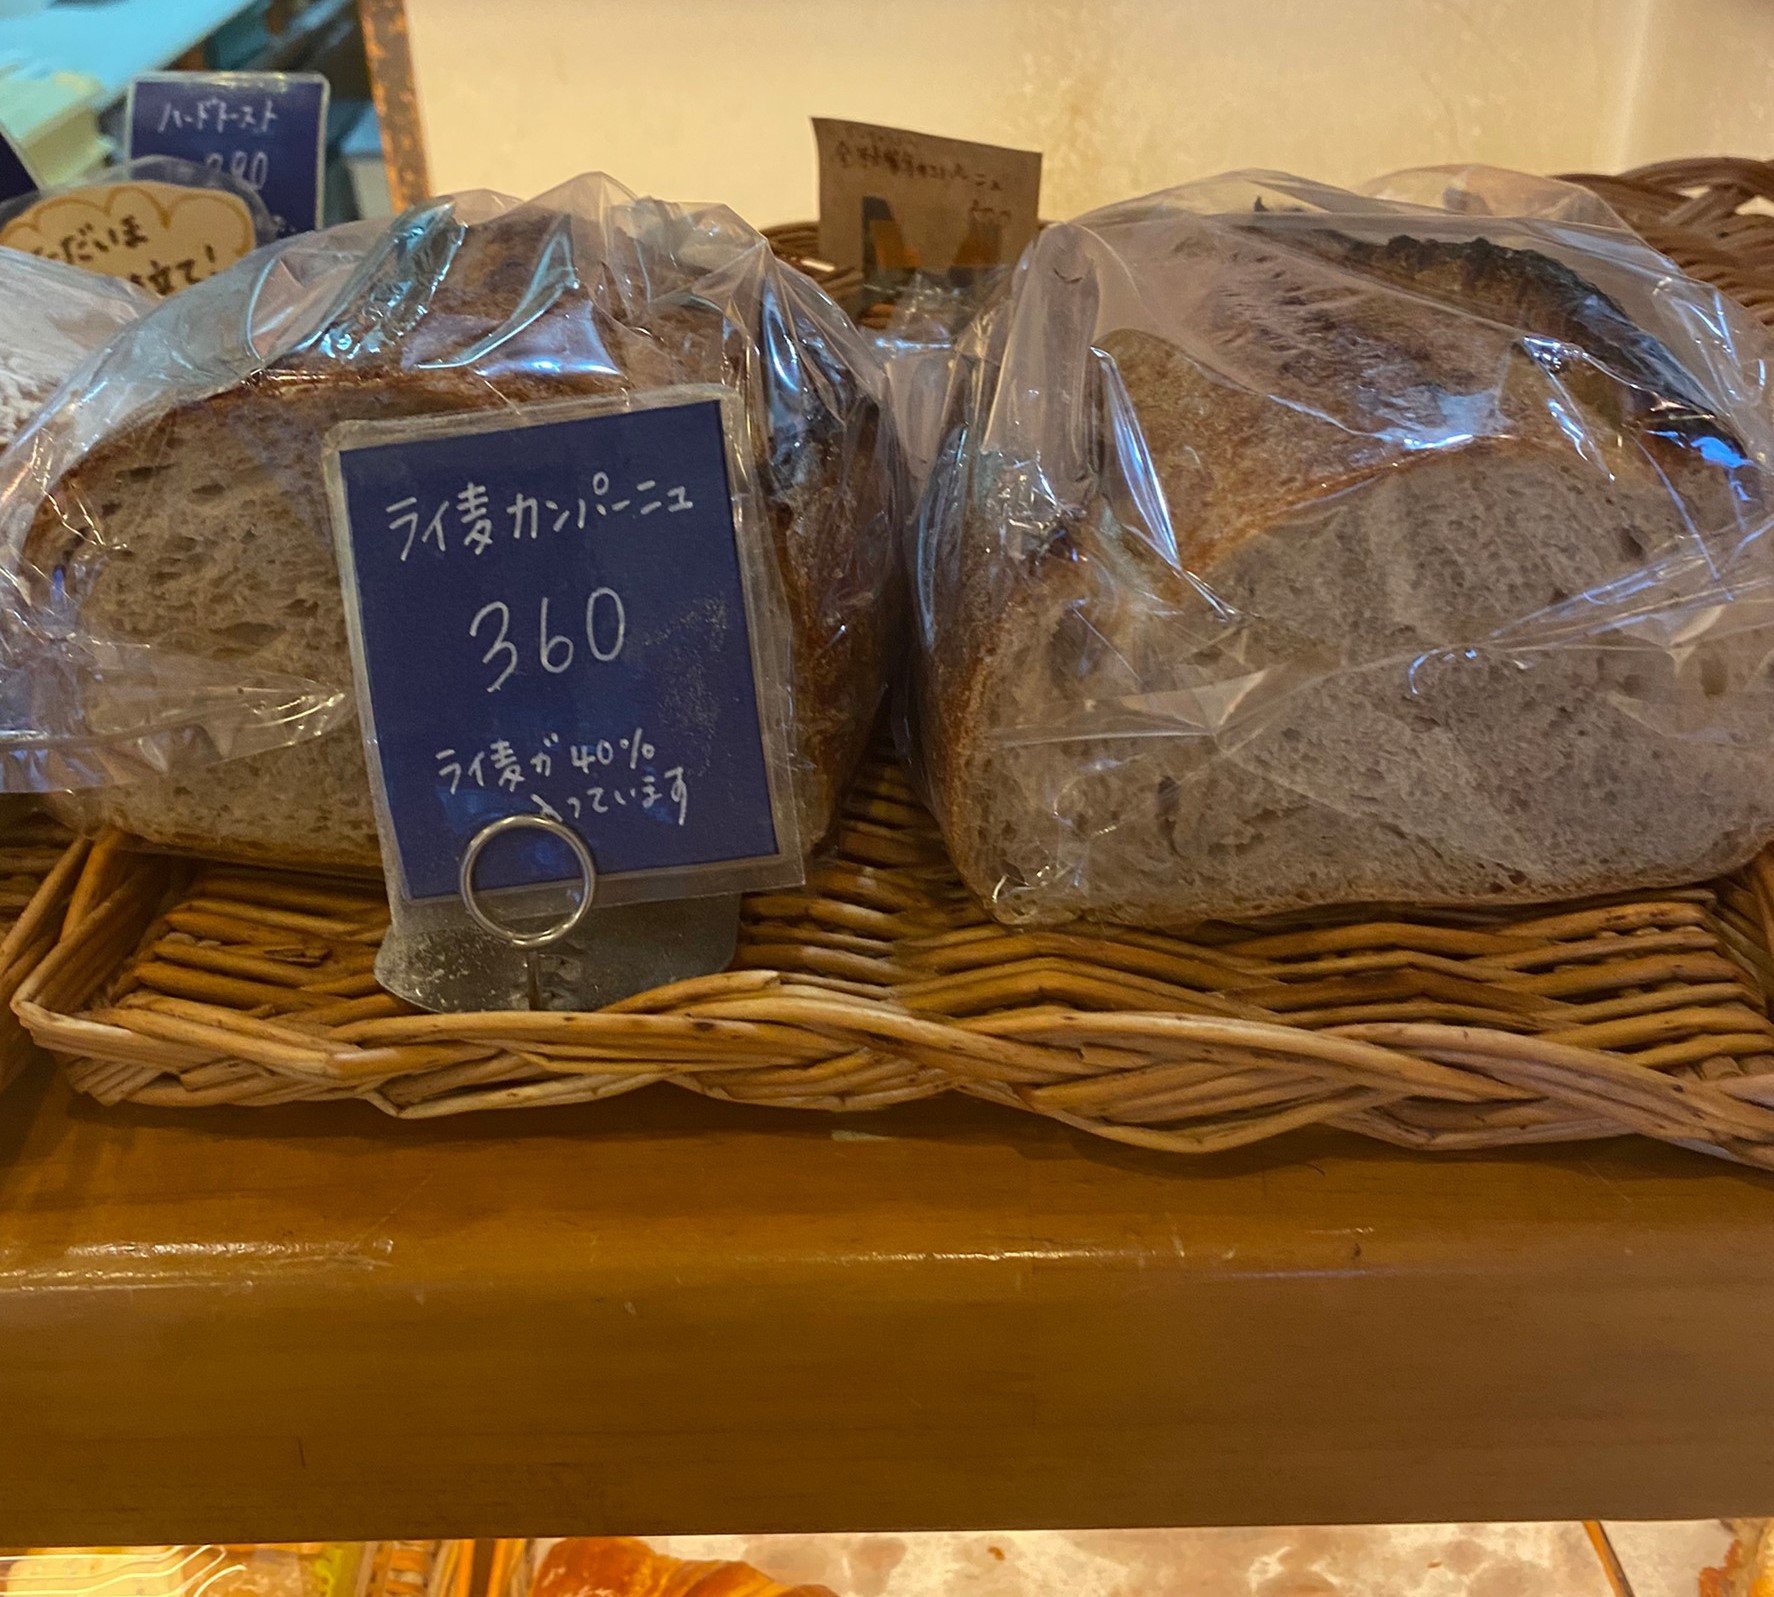 ハードトースト
ただいま
立て!
ライ麦カンパーニュ
360
ライ麦が40%
入っています